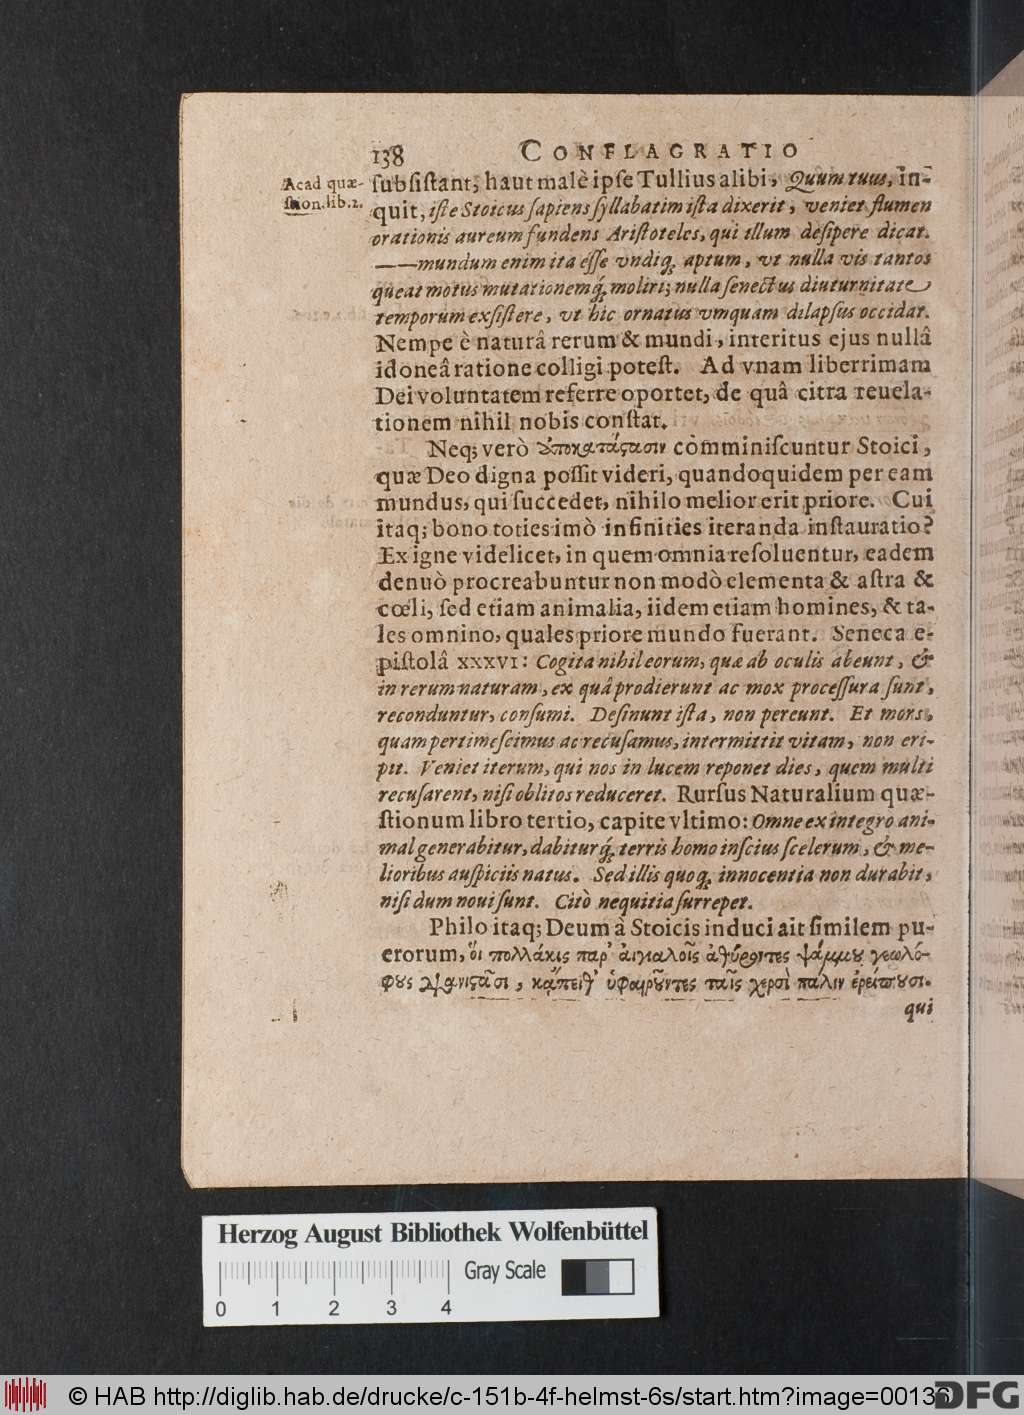 138 CONFLAGRATIO
Acad quæ-
stion.lib.2.
subsistant; haut malè ipse Tullius alibi, Quum tuus, in-
quit, iste Stoicus sapiens syllabatim ista dixerit, veniet flumen
orationis aureum fundens Aristoteles, qui illum desipere dicat.
——mundum enim ita esse vndiq; aptum, vt nulla vis tantos
queat motus mutationemq́; moliri; nulla senectus diuturnitate
temporum exsistere, vt hic ornatus vmquam dilapsus occidat.
Nempe è naturâ rerum & mundi, interitus ejus nullâ
idoneâ ratione colligi potest. Ad vnam liberrimam
Dei voluntatem referre oportet, de quâ citra reuela-
tionem nihil nobis constat.
Neq; verò ἀποκατάστασιν comminiscuntur Stoici,
quæ Deo digna possit videri, quandoquidem per eam
mundus, qui succedet, nihilo melior erit priore. Cui
itaq; bono toties imò infinities iteranda instauratio?
Ex igne videlicet, in quem omnia resoluentur, eadem
denuò procreabuntur non modò elementa & astra &
cœli, sed etiam animalia, iidem etiam homines, & ta-
les omnino, quales priore mundo fuerant. Seneca e-
pistolâ XXXVI: Cogita nihil eorum, quæ ab oculis abeunt, &
in rerum naturam, ex quâ prodierunt ac mox processura sunt,
reconduntur, consumi. Desinunt ista, non pereunt. Et mors,
quam pertimescimus ac recusamus, intermittit vitam, non eri-
pit. Veniet iterum, qui nos in lucem reponet dies, quem multi
recusarent, nisi oblitos reduceret. Rursus Naturalium quæ-
stionum libro tertio, capite vltimo: Omne ex integro ani-
mal generabitur, dabiturq́; terris homo inscius scelerum, & me-
lioribus auspiciis natus. Sed illis quoq; innocentia non durabit,
nisi dum noui sunt. Citò nequitia surrepet.
Philo itaq; Deum à Stoicis induci ait similem pu-
erorum, οἳ πολλάκις παρ' αἰγιαλοῖς ἀθύροντες ψάμμου γεωλό-
φους ἀνιστᾶσι, κἄπειθ' ὑφαιροῦντες ταῖς χερσὶ πάλιν ἐρείπουσι.
qui
Herzog August Bibliothek Wolfenbüttel
Gray Scale
0 1 2 3 4
© HAB http://diglib.hab.de/drucke/c-151b-4f-helmst-6s/start.htm?image=00136
DFG